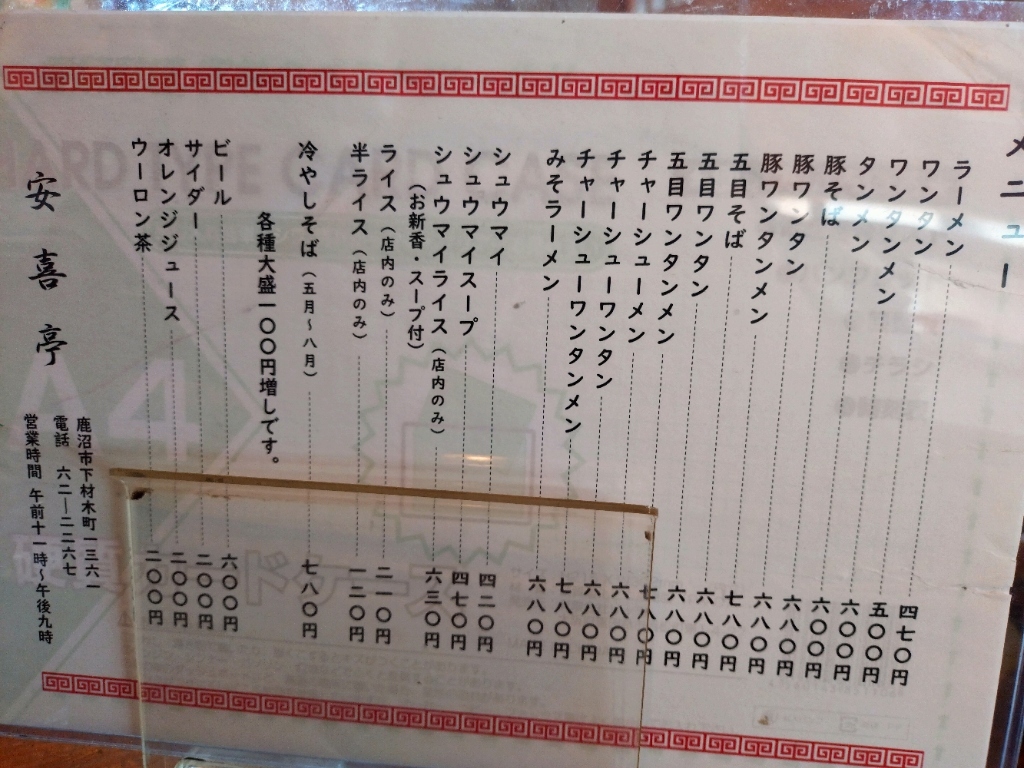 メニュー
ラーメン 四七〇円
ワンタン 五〇〇円
ワンタンメン 六〇〇円
タンメン 六〇〇円
豚そば 六八〇円
豚ワンタン 六八〇円
豚ワンタンメン 七八〇円
五目そば 六八〇円
五目ワンタン 六八〇円
五目ワンタンメン 七八〇円
チャーシューメン 六八〇円
チャーシューワンタン 六八〇円
チャーシューワンタンメン 七八〇円
みそラーメン 六八〇円
シュウマイ 四二〇円
シュウマイスープ 四七〇円
シュウマイライス(店内のみ) 六三〇円
(お新香・スープ付)
ライス(店内のみ) 二一〇円
半ライス(店内のみ) 一三〇円
冷やしそば(五月〜八月) 七八〇円
各種大盛一〇〇円増しです。
ビール 六〇〇円
サイダー 二〇〇円
オレンジジュース 二〇〇円
ウーロン茶 二〇〇円
鹿沼市下材木町一三六一
電話 六二―二二六七
営業時間 午前十一時〜午後九時
安喜亭